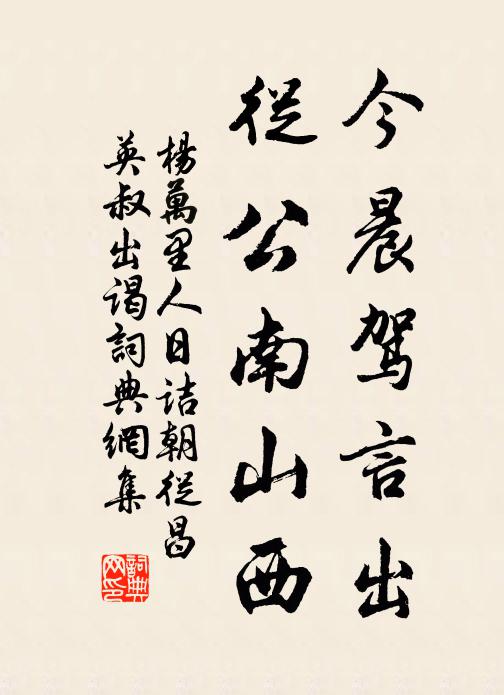 今晨駕言出
從公南山西
楊萬里人日詰朝從昌
英叔出謁詞典網集
詞典網印